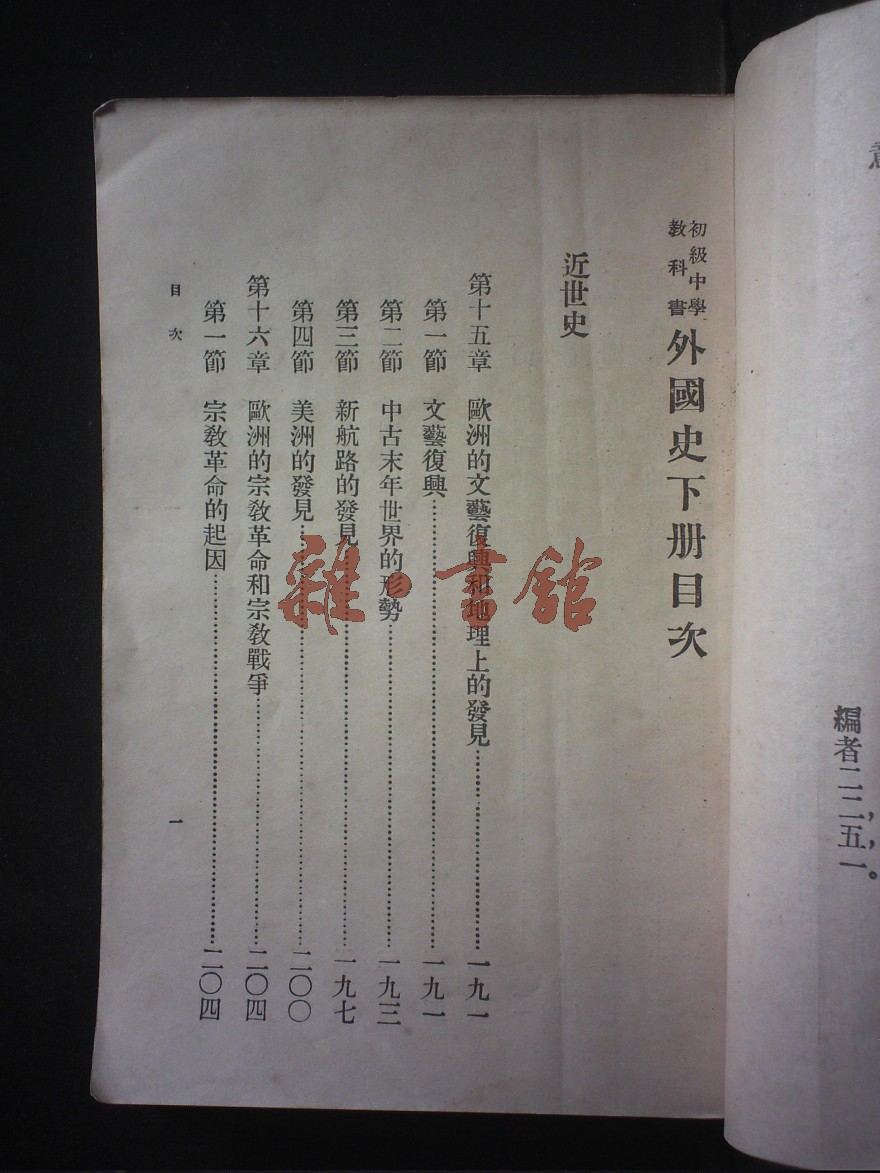 編者二二，五，一。
初級中學
教科書
外國史下册目次
近世史
第十五章　歐洲的文藝復興和地理上的發見…………一九一
第一節　文藝復興…………一九一
第二節　中古末年世界的形勢…………一九三
第三節　新航路的發見…………一九七
第四節　美洲的發見…………二〇〇
第十六章　歐洲的宗教革命和宗教戰爭…………二〇四
第一節　宗教革命的起因…………二〇四
目次　一
雜·書館